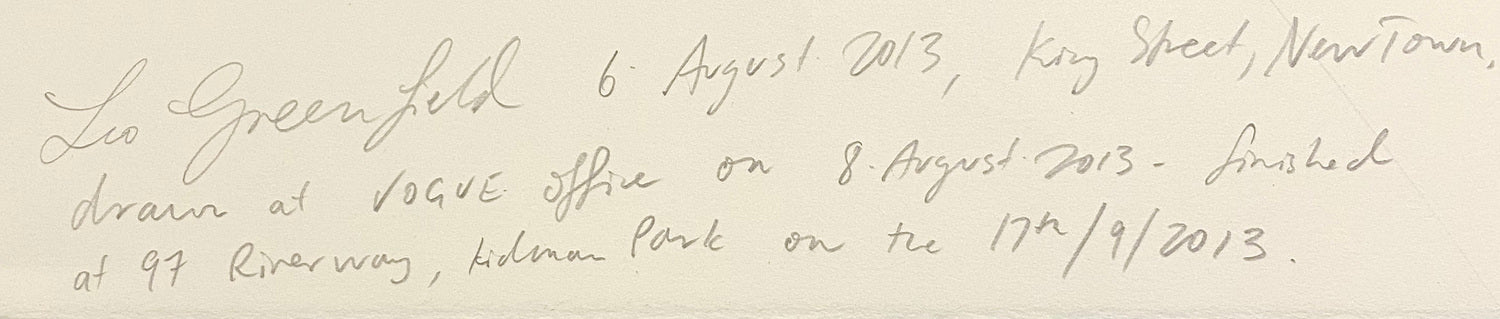 Leo Greenfield 6. August 2013, King Street, NewTown,
drawn at VOGUE office on 8. August. 2013 - finished
at 97 Riverway, Kidman Park on the 17th/9/2013.